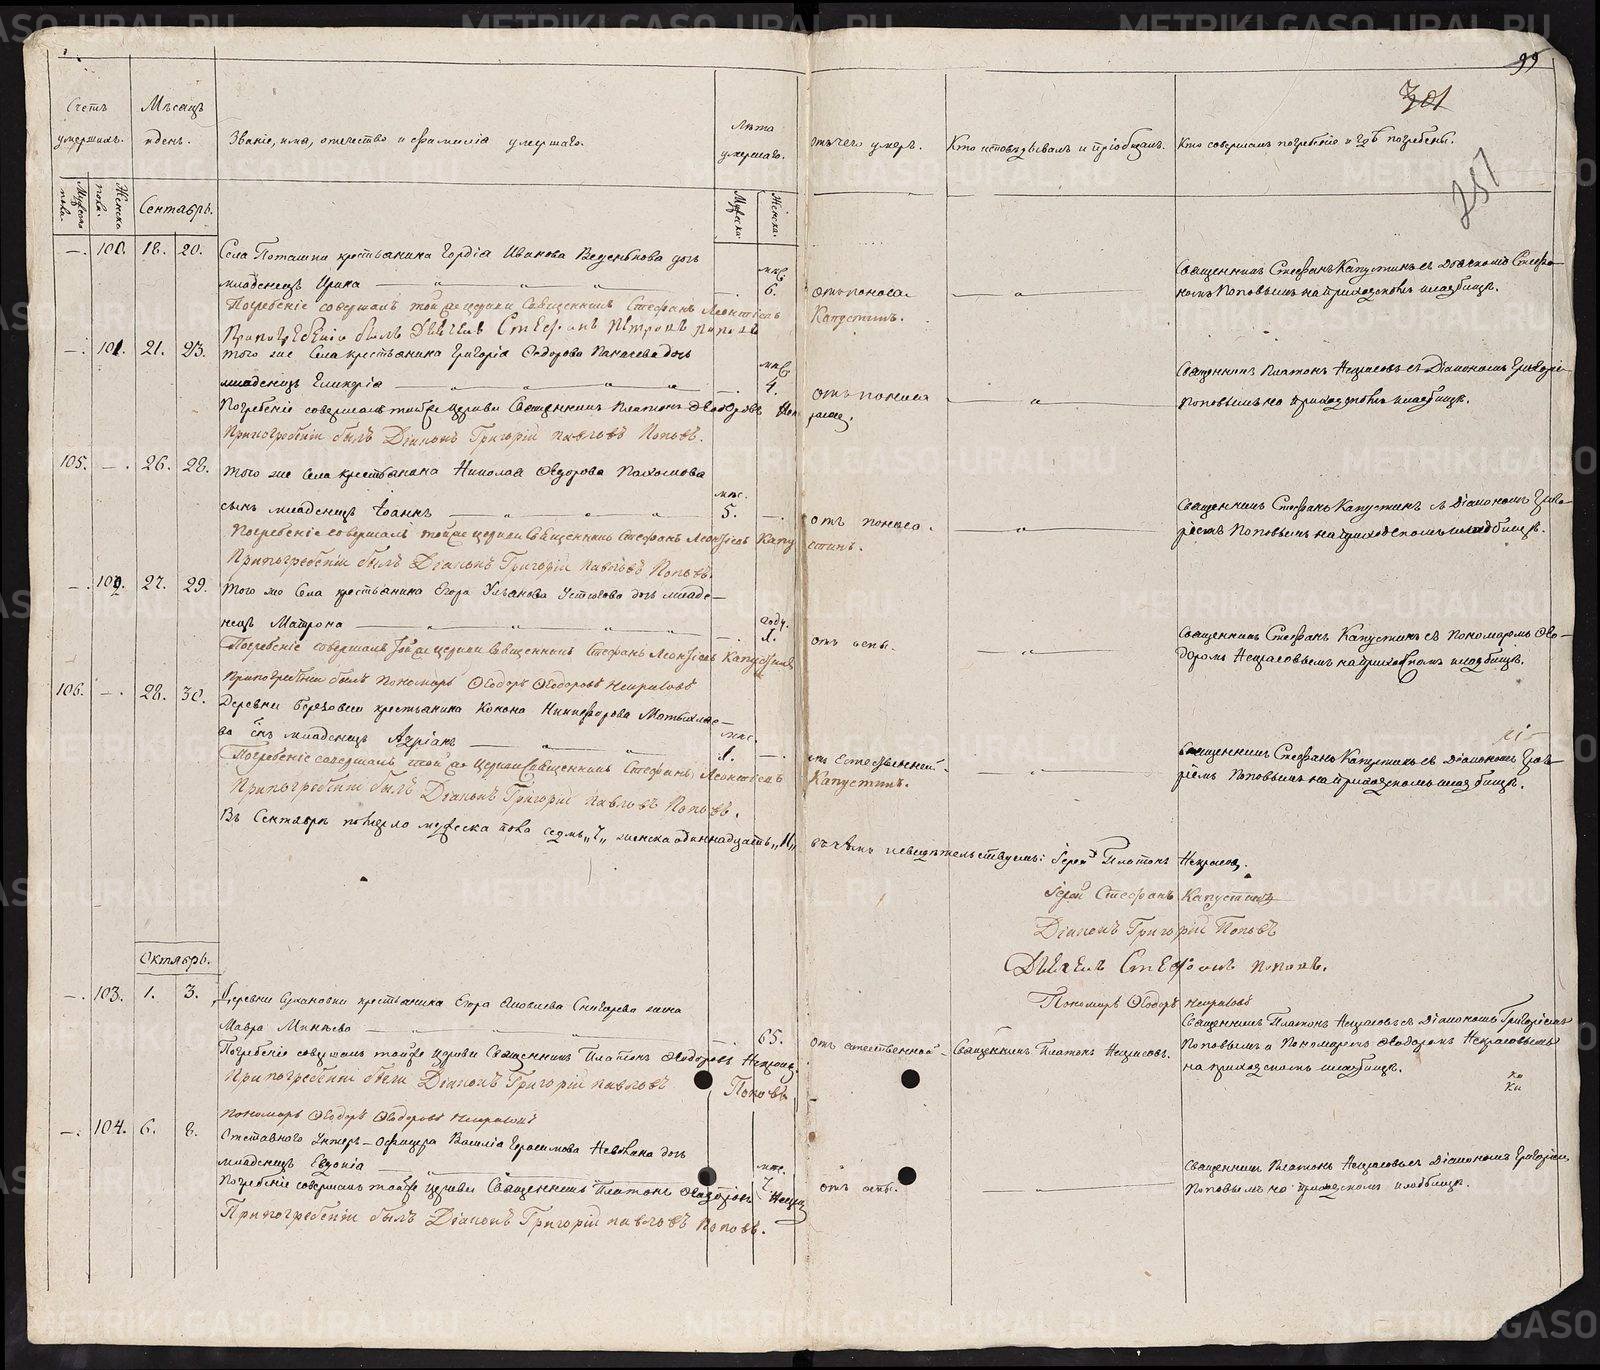 99
301
251
Счетъ умершихъ.
Мѣсяцъ и день.
Званіе, имя, отечество и фамилія умершаго.
Лѣта умершаго.
Отъ чего умеръ.
Кто исповѣдывалъ и пріобщалъ.
Кто совершалъ погребеніе и гдѣ погребены.
Мужеска пола.
Женска пола.
Сентябрь.
Мужеска.
Женска.
—. 100. 18. 20. Села Поташки крестьянина Гордія Иванова дочь
младенецъ Ирина мѣс. 6. отъ поноса. Священникъ Стефанъ Капустинъ съ Дьячкомъ Стефа-
номъ Поповымъ на приходскомъ кладбищѣ.
Погребеніе совершалъ той же церкви Священникъ Стефанъ Леонтіевъ Капустинъ.
При погребеніи былъ Дьячекъ Стефанъ Петровъ Поповъ
—. 101. 21. 23. Того же Села крестьянина Григорія дочь
младенецъ Гликерія мѣс. 4. отъ поноса Священникъ Платонъ Некрасовъ съ Діакономъ Григорі-
Поповымъ на приходскомъ кладбищѣ.
Погребеніе совершалъ той же церкви Священникъ Платонъ Ѳеодоровъ
При погребеніи былъ Діаконъ Григорій Павловъ Поповъ.
105. —. 26. 28. Того же Села крестьянина Николая Ѳедорова Пахомова
сынъ младенецъ Іоаннъ мѣс. 5. —. отъ поноса. Священникъ Стефанъ Капустинъ съ Діакономъ Григо-
ріемъ Поповымъ на приходскомъ кладбищѣ.
Погребеніе совершалъ той же церкви Священникъ Стефанъ Леонтіевъ Капустинъ.
При погребеніи былъ Діаконъ Григорій Павловъ Поповъ.
—. 102. 27. 29. Того же Села крестьянина Егора Ульянова дочь младе-
нецъ Матрона году. 1. отъ оспы. Священникъ Стефанъ Капустинъ съ Пономаремъ Ѳео-
доромъ Некрасовымъ на приходскомъ кладбищѣ.
Погребеніе совершалъ той же церкви Священникъ Стефанъ Леонтіевъ Капустинъ
При погребеніи былъ Пономарь Ѳеодоръ Ѳеодоровъ Некрасовъ
106. —. 28. 30. Деревни крестьянина Конона Никифорова
ва сынъ младенецъ Адріанъ мѣс. 1. —. отъ естественной. Священникъ Стефанъ Капустинъ съ Діакономъ Григо-
ріемъ Поповымъ на приходскомъ кладбищѣ.
Погребеніе совершалъ той же церкви Священникъ Стефанъ Леонтіевъ Капустинъ.
При погребеніи былъ Діаконъ Григорій Павловъ Поповъ.
Въ Сентябрѣ померло мужеска пола седмь „7„ женска одиннадцать „11„ въ чемъ и свидѣтельствуемъ: Іерей Платонъ Некрасовъ.
Іерей Стефанъ Капустинъ
Діаконъ Григорій Поповъ
Дьячекъ Стефанъ Поповъ.
Пономарь Ѳеодоръ Некрасовъ
Октябрь.
—. 103. 1. 3. Деревни крестьянина Егора Яковлева жена
Мавра 65. отъ естественной Священникъ Платонъ Некрасовъ. Священникъ Платонъ Некрасовъ съ Діакономъ Григоріемъ
Поповымъ и Пономаремъ Ѳеодоромъ Некрасовымъ
на приходскомъ кладбищѣ.
Погребеніе совершалъ той же церкви Священникъ Платонъ Ѳеодоровъ Некрасовъ
При погребеніи были Діаконъ Григорій Павловъ Поповъ
Пономарь Ѳеодоръ Ѳеодоровъ Некрасовъ
—. 104. 6. 8. Отставного Унтеръ-Офицера Василія Герасимова дочь
младенецъ Евдокія мѣс. 7. отъ оспы. Священникъ Платонъ Некрасовъ съ Діакономъ Григоріем
Поповымъ на приходскомъ кладбищѣ.
Погребеніе совершалъ той же церкви Священникъ Платонъ Ѳеодоровъ
При погребеніи былъ Діаконъ Григорій Павловъ Поповъ.
METRIKI.GASO-URAL.RU